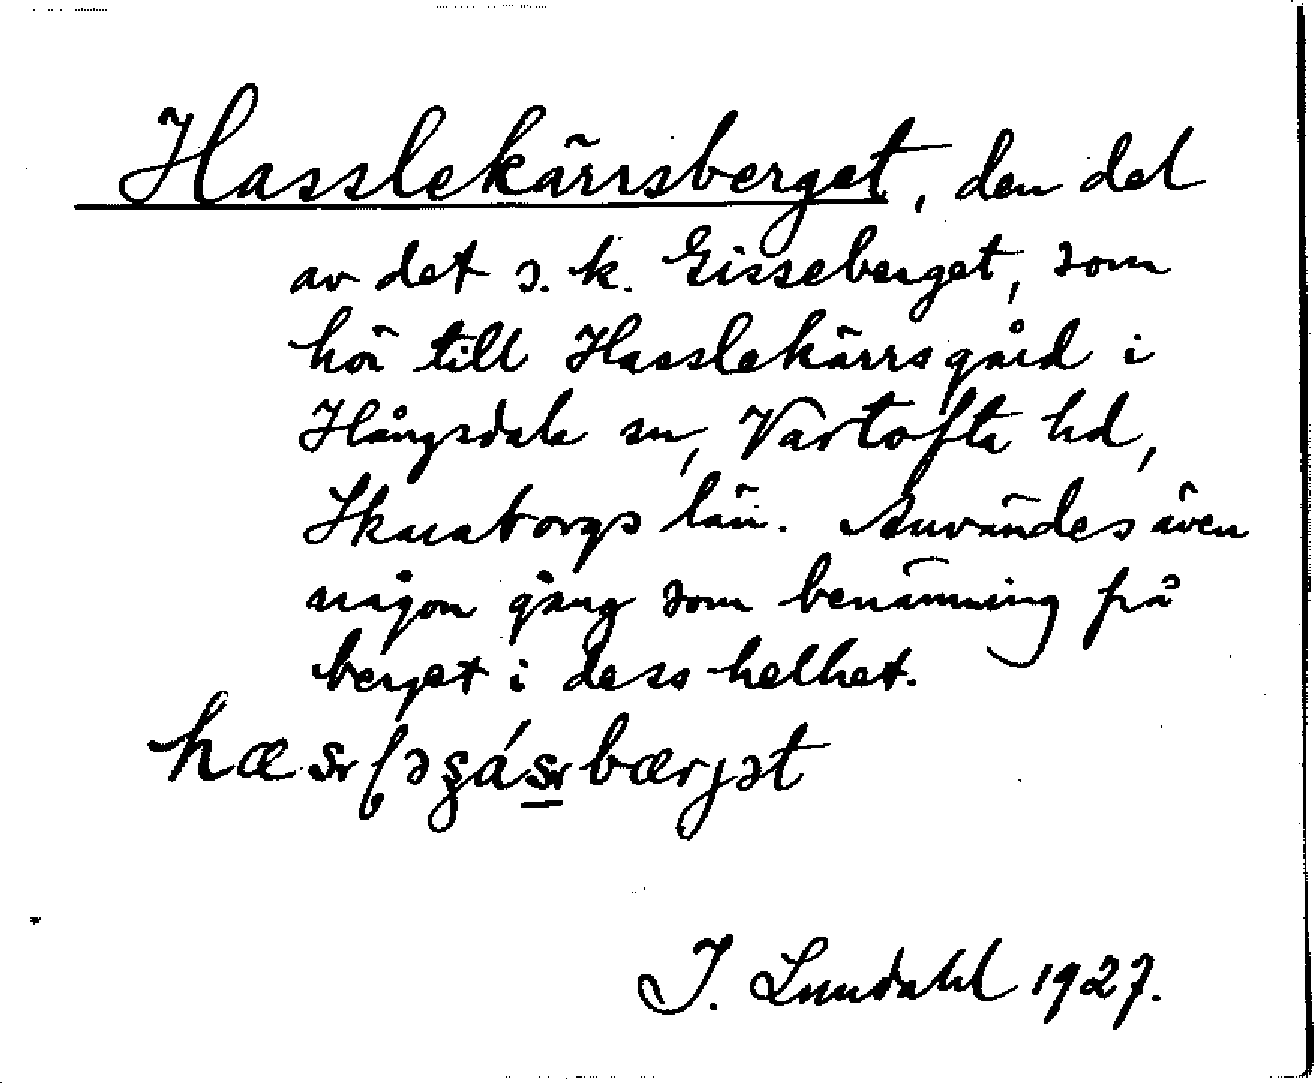 Hasslekärrsberget, den del
av det s. k. Gisseberget, som
hör till Hasslekärrsgård i
Hångsdala sn, Vartofta hd,
Skaraborgs län. Användes även
någon gång som benämning på
berget i dess helhet.
bærgət
I. Lundahl 1927.